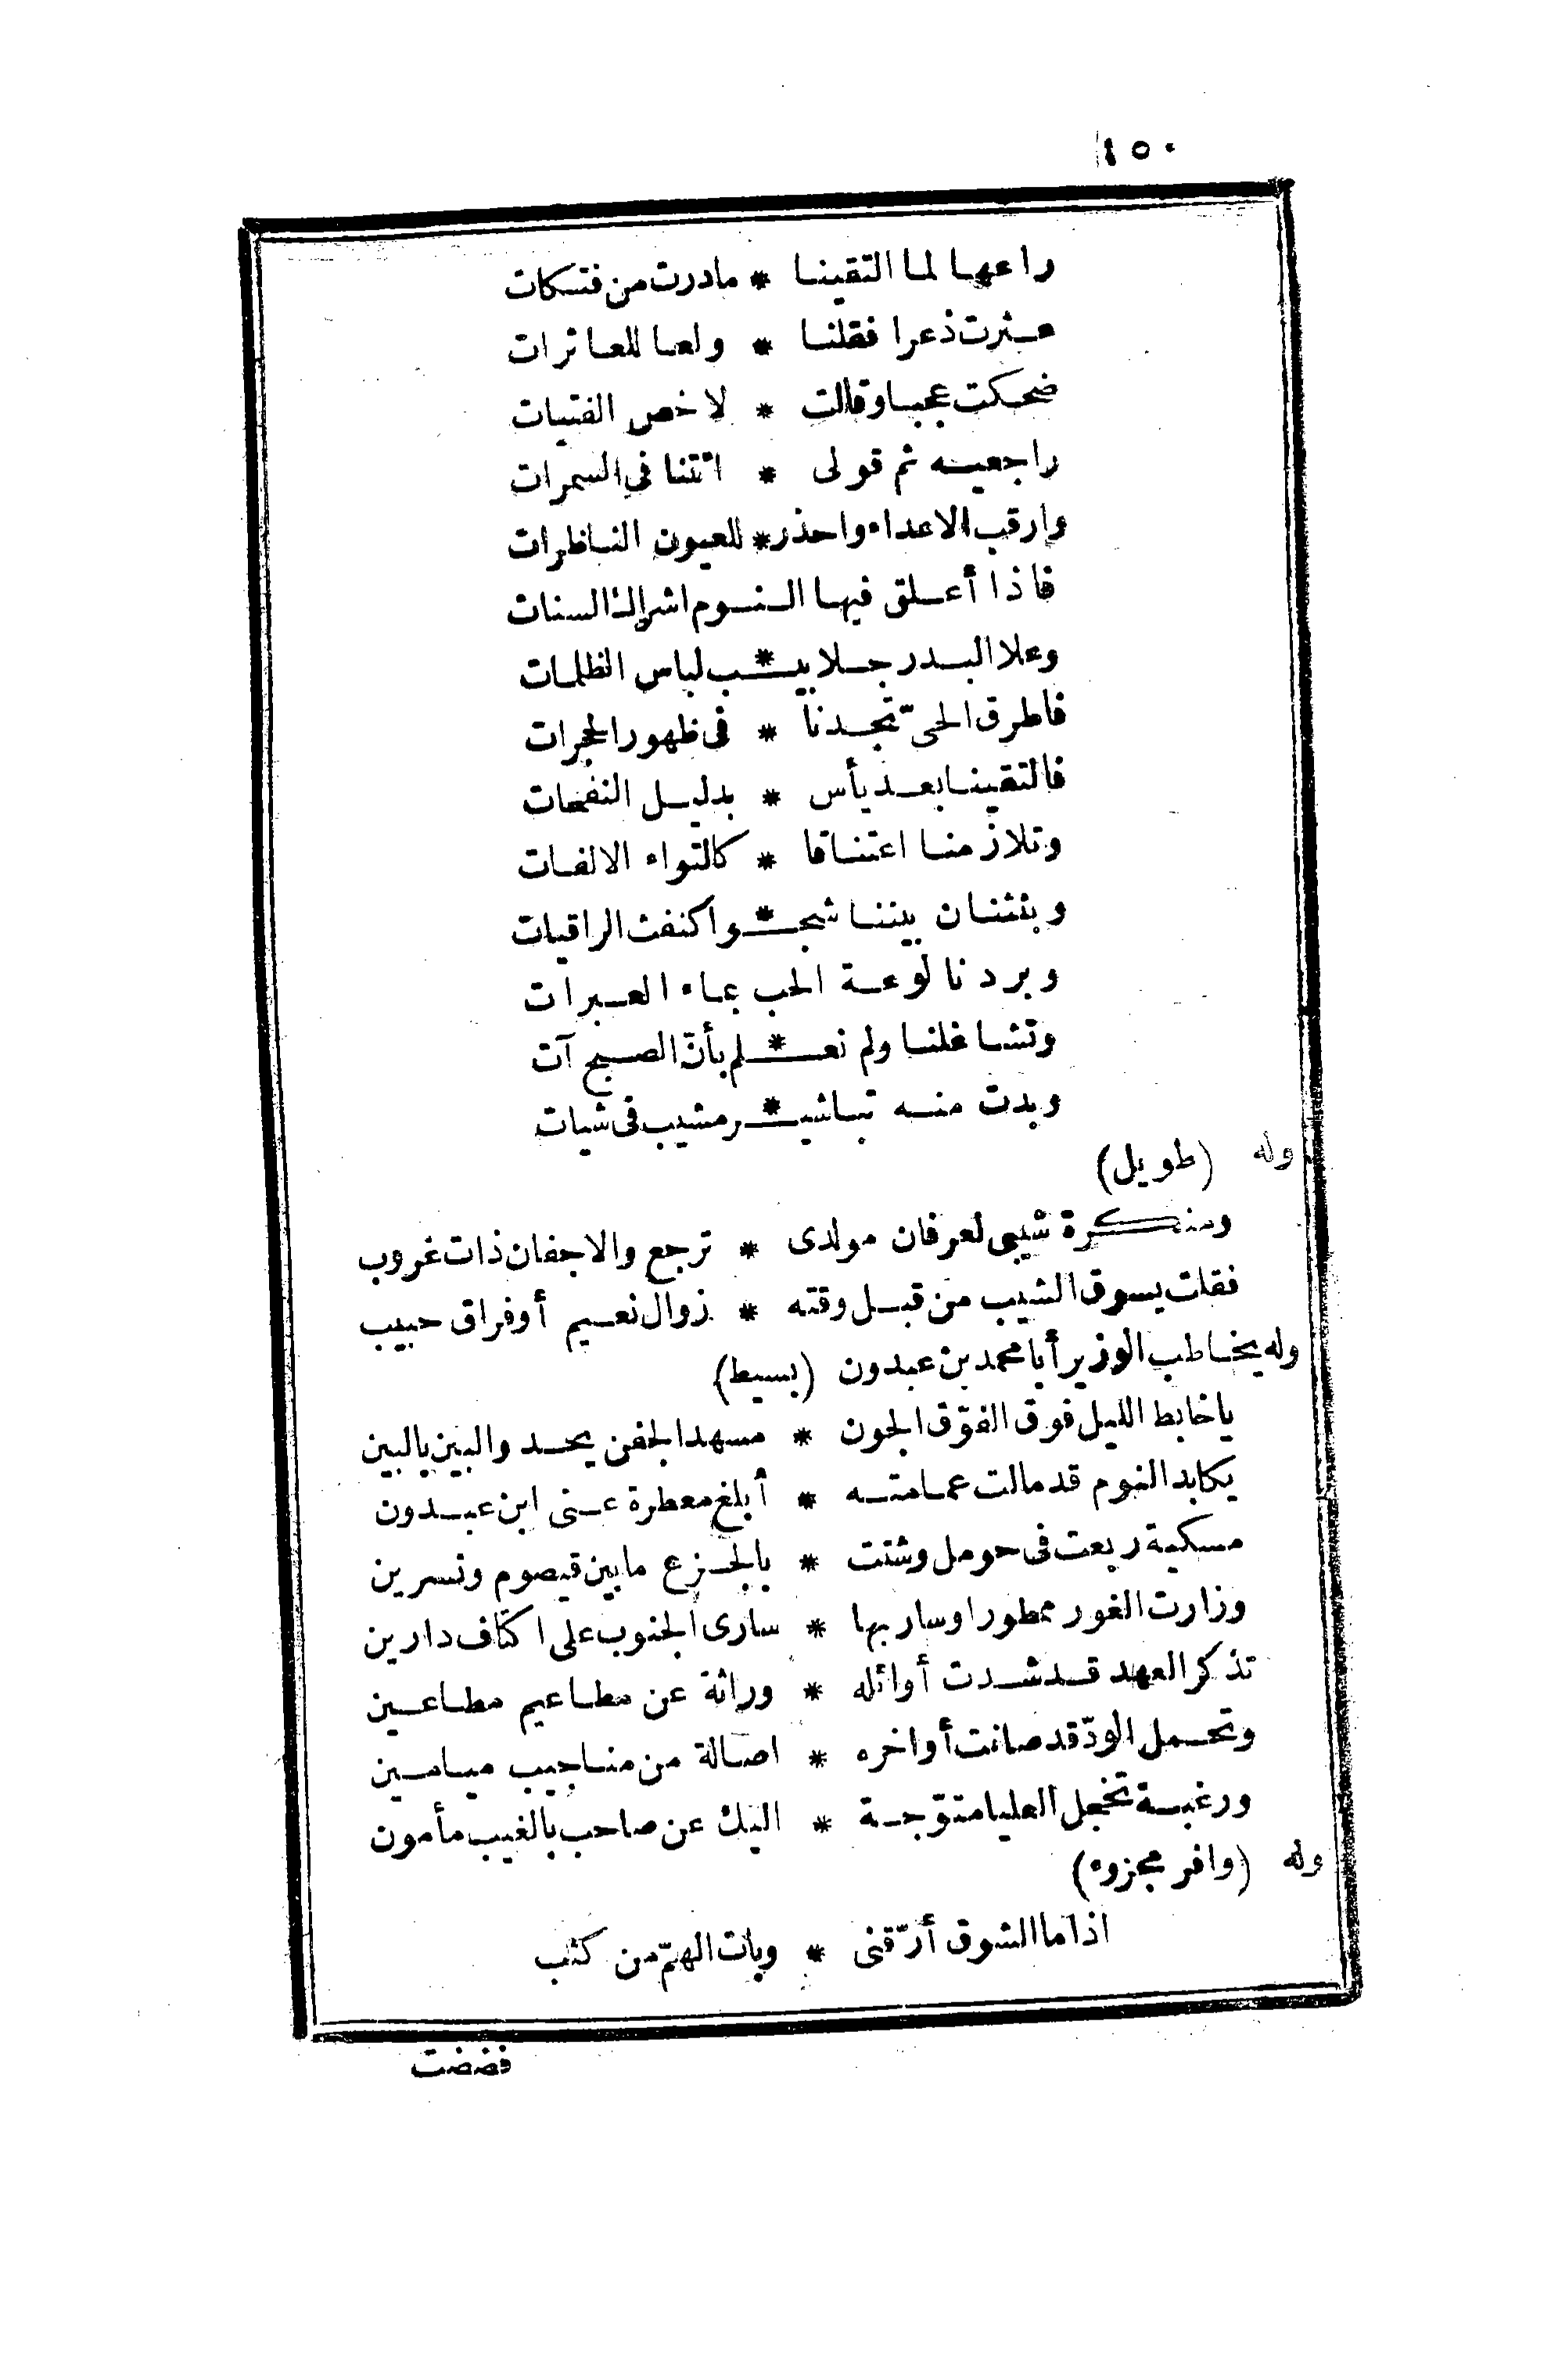 ١٥٠
راعها لما التقينا * مادرت من فتكات
عثرت ذعرا فقلنا * ولعا للعاثرات
ضحكت عجبا وقالت * لاخص الفتيات
راجعيه ثم قولى * ائتنا فى السمرات
وارقب الاعداء واحذر * للعيون الناظرات
فاذا أعلق فيها النوم اشراك السنات
وعلا البدر جلابيـ * ـب لباس الظلمات
فاطرق الحىّ تجدنا * فى ظهور الحجرات
فالتقينا بعد يأس * بدليل النفحات
وتلازمنا اعتناقا * كالتواء الالفات
وبثثنان بيننا شجـ * ـوا كنفث الراقيات
وبردنا لوعة الحب بماء العبرات
وتشاغلنا ولم نعـ * ـلم بأنّ الصبح آت
وبدت منه تباشيـ * ـر مشيب فى شيات
وله (طويل)
ومنكرة شيبى لعرفان مولدى * ترجع والاجفان ذات غروب
فقلت يسوق الشيب من قبل وقته * زوال نعيم أوفراق حبيب
وله يخاطب الوزير أبا محمد بن عبدون (بسيط)
ياخابط الليل فوق الفوّق الجون * مسهد الجفن يحدو البين بالبين
يكابد النوم قدمالت عمامته * أبلغ معطرة عنى ابن عبدون
مسكية ربعت فى حومل وشتت * بالجزع مابين قيصوم ونسرين
وزارت الغور ممطورا وساربها * سارى الجنوب على اكتاف دارين
تذكر العهد قد شدت أوائله * وراثة عن مطاعيم مطاعين
وتحمل الودّ قد صانت أواخره * اصالة من مناجيب ميامين
ورغبة تخجل العليا متوّجة * اليك عن صاحب بالغيب مأمون
وله (وافر مجزوء)
اذا ما الشوق أرّقنى * وبات الهمّ من كثب
فضضت